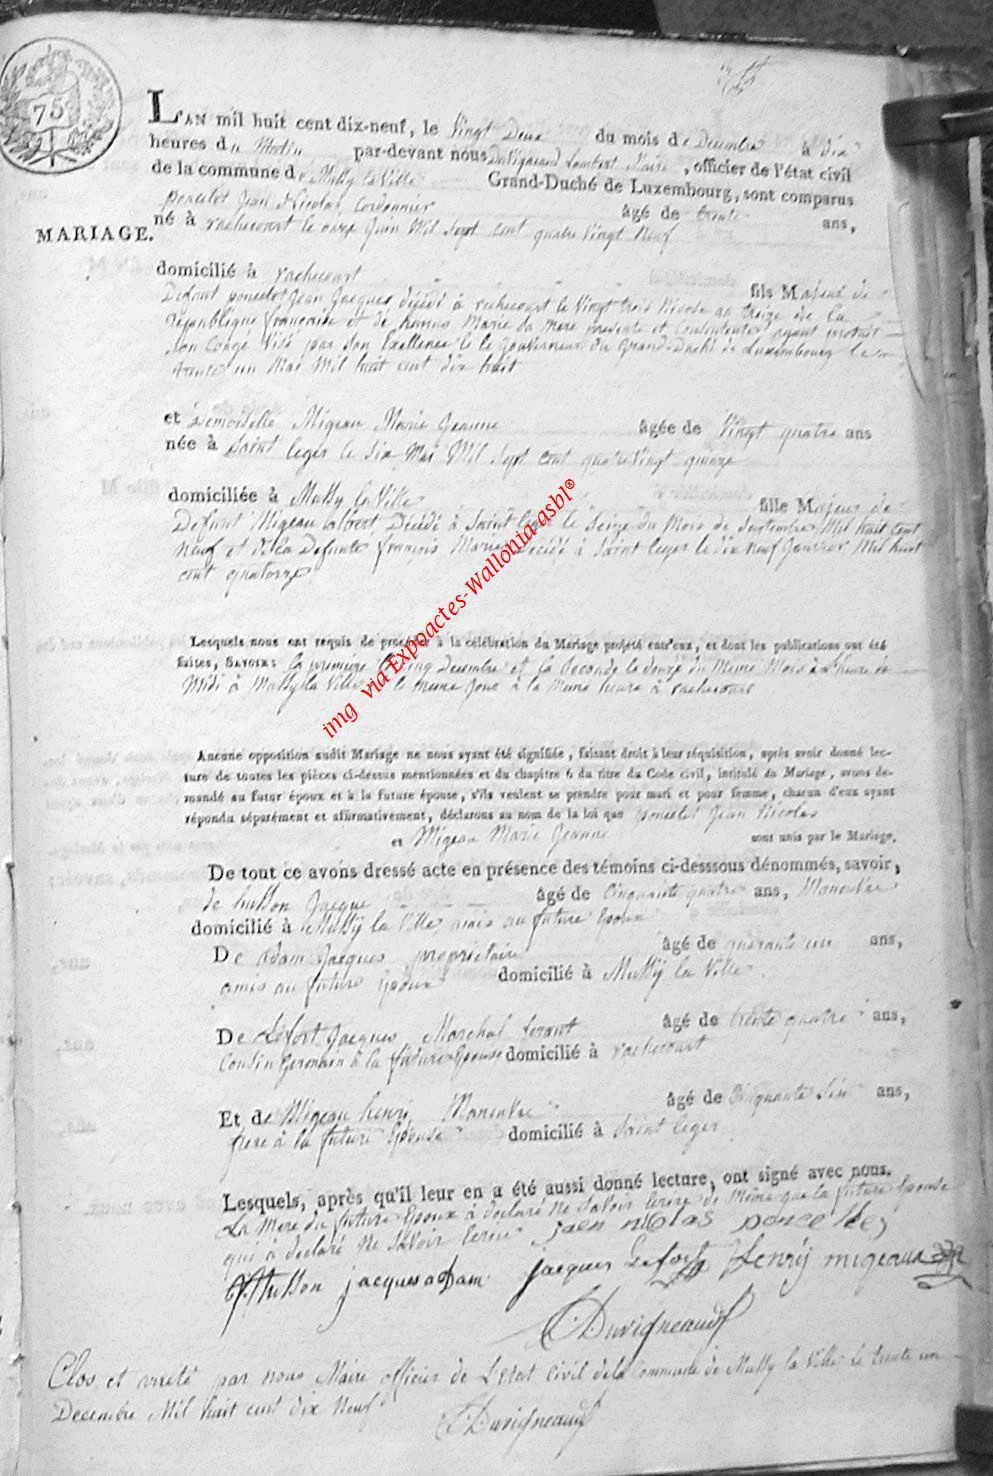 75
L'AN mil huit cent dix-neuf, le Vingt Deux du mois de Decembre à dix
heures du Matin par-devant nous Duvigneaud Lambert Maire, officier de l'état civil
de la commune de Mussy la Ville Grand-Duché de Luxembourg, sont comparus
poncelet Jean Nicolas Cordonnier âgé de trente ans,
MARIAGE.
né à rachecourt le onze Juin Mil Sept cent quatre Vingt Neuf
domicilié à rachecourt fils Majeur de
Defunt poncelet Jean Jacques décédé à rachecourt le Vingt trois Nivose an treize de la
république française et de Marie Sa Mere presente et Consentente ayant
Son Congé Visé par Son Exellence le Gouverneur du Grand-Duché de Luxembourg le
trente un Mai Mil huit cent dix huit
et Demoiselle Migeau Marie Jeanne âgée de Vingt quatre ans
née à Saint leger le Six Mai Mil Sept cent quatre Vingt quinze
domiciliée à Mussy la Ville fille Majeur de
Defunt Migeau albert Décédé à Saint leger le Seize du Mois de Septembre Mil huit cent
Neuf et de la Defunte françois Marie Décédé à Saint leger le dix neuf Janvier Mil huit
cent quatorze
Lesquels nous ont requis de procéder à la célébration du Mariage projeté entr'eux, et dont les publications ont été
faites, SAVOIR: la premiere le Cinq Decembre et la Seconde le douze du Meme Mois à l'heure de
Midi à Mussy la Ville et le meme Jour à la Meme heure à rachecourt
img via Expoactes-Wallonia-asbl®
Aucune opposition audit Mariage ne nous ayant été signifiée, faisant droit à leur réquisition, après avoir donné lec-
ture de toutes les pièces ci-dessus mentionnées et du chapitre 6 du titre du Code civil, intitulé du Mariage, avons de-
mandé au futur époux et à la future épouse, s'ils veulent se prendre pour mari et pour femme, chacun d'eux ayant
répondu séparément et affirmativement, déclarons au nom de la loi que poncelet Jean Nicolas
et Migeau Marie Jeanne sont unis par le Mariage.
De tout ce avons dressé acte en présence des témoins ci-desssous dénommés, savoir,
de husson Jacque âgé de Cinquante quatre ans, Manouvre
domicilié à Mussy la Ville amis au future Epoux
De adam Jacques proprietaire âgé de quarante un ans,
amis au future Epoux domicilié à Mussy la Ville.
De Lefort Jacques Marchal ferant âgé de trente quatre ans,
Cousin Germain à la future Epouse domicilié à rachecourt
Et de Migeau henri Manouvre âgé de Cinquante Six ans,
frere à la future Epouse domicilié à Saint leger
Lesquels, après qu'il leur en a été aussi donné lecture, ont signé avec nous.
La Mere du future Epoux à déclaré ne Savoir Ecrire de Même que la future Epouse
qui à declaré ne Savoir Ecrire jaen nicolas poncelley
husson jacques adam jacques Lefort henry migeaux
Duvigneaud
Clos et arreté par nous Maire officier de L'etat Civil de la Commune de Mussy la Ville le trente un
Decembre Mil huit cent dix Neuf
Duvigneaud